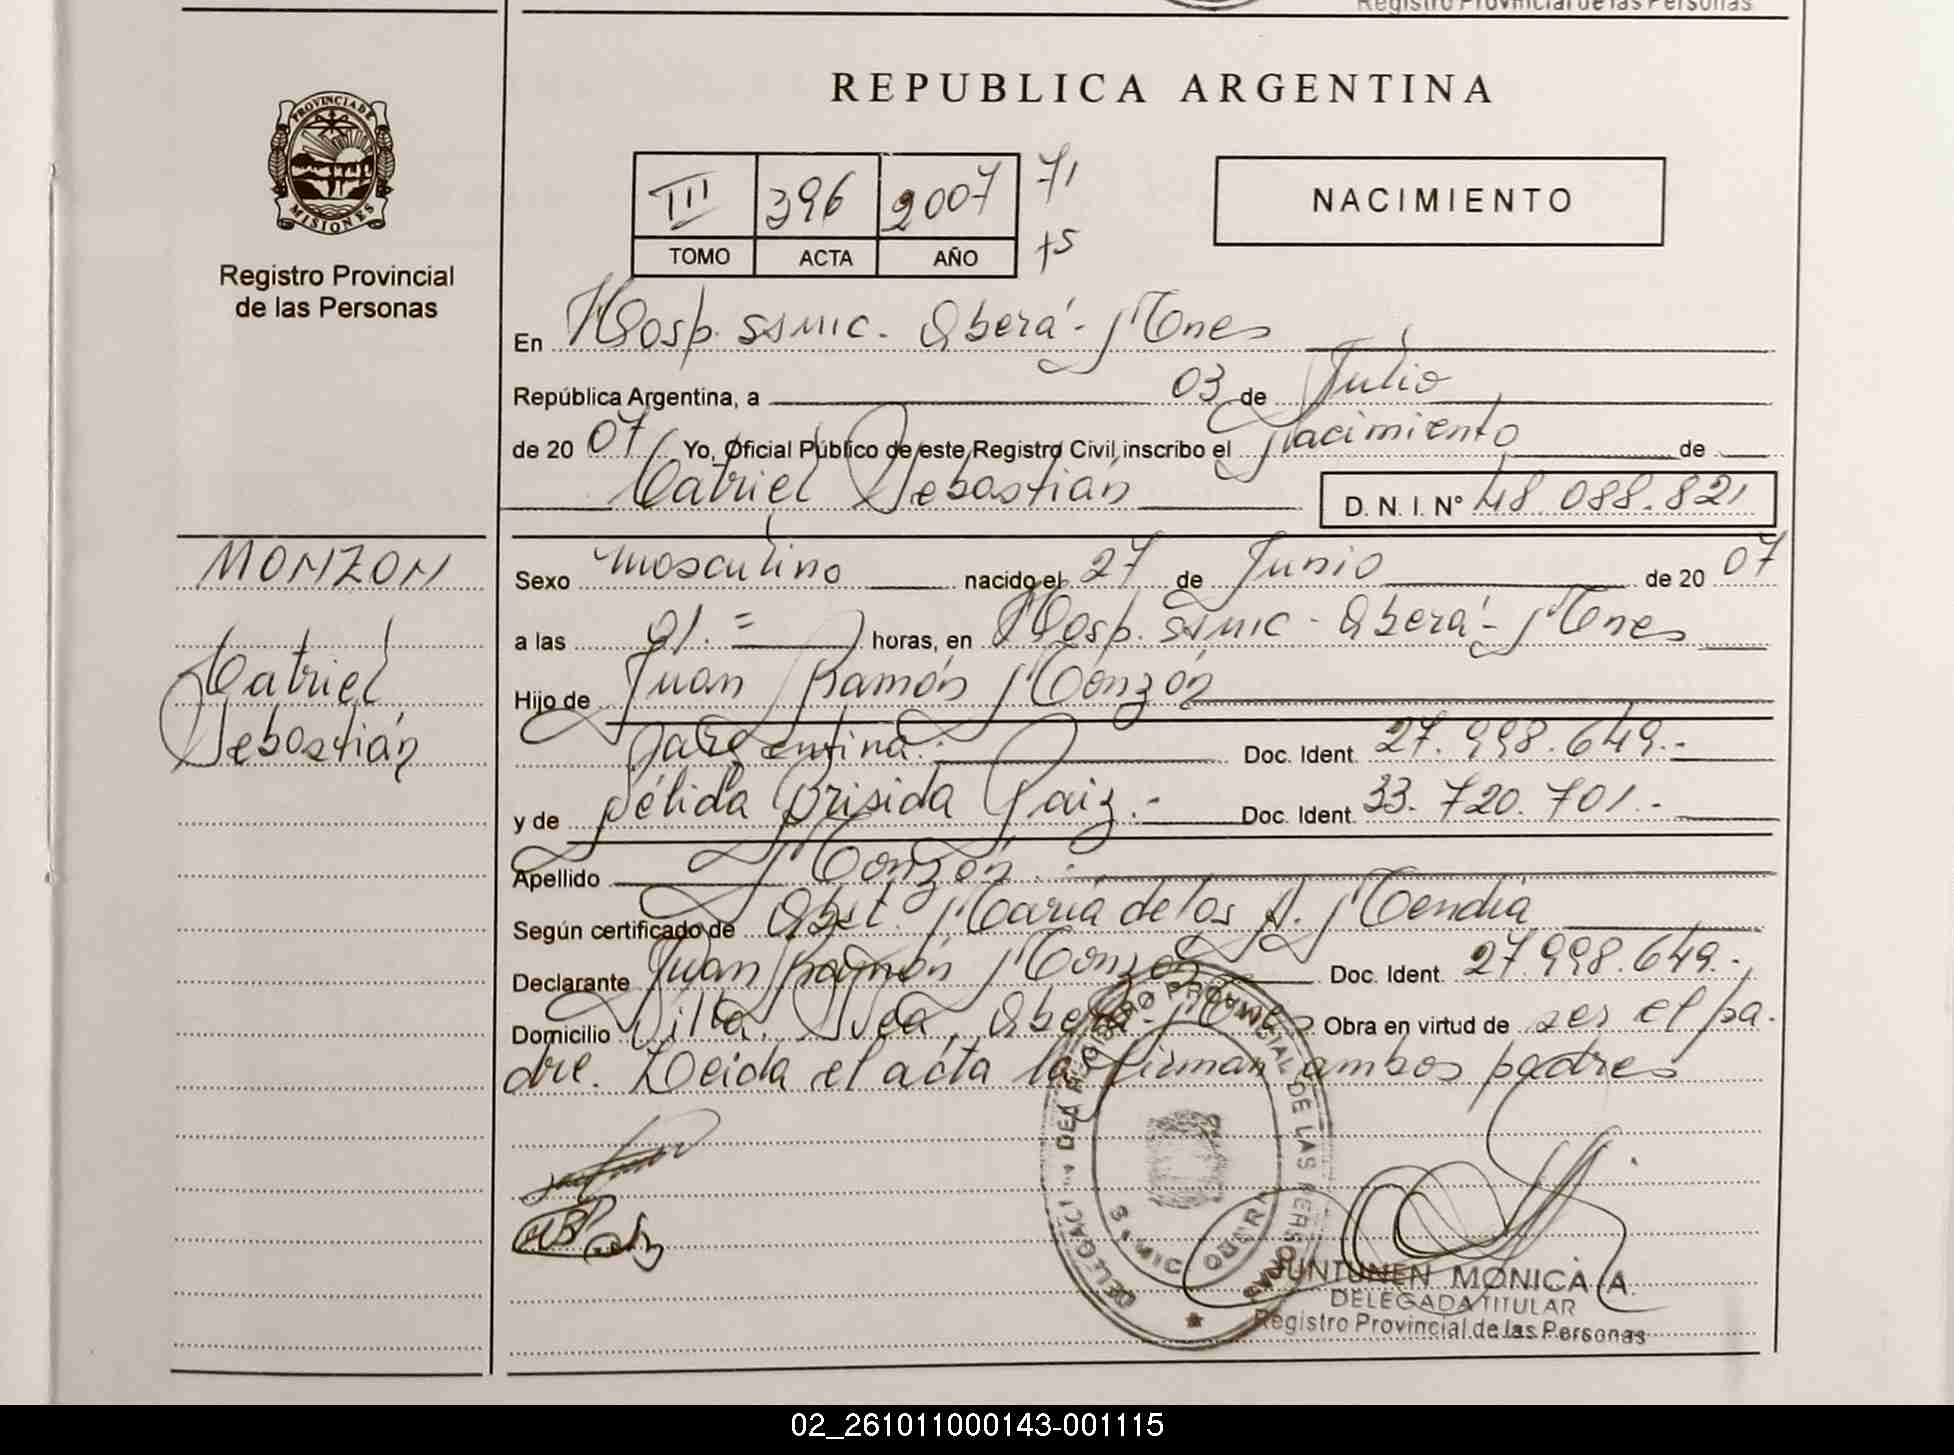 Registro Provincial de las Personas
REPUBLICA ARGENTINA
PROVINCIA DE MISIONES
Registro Provincial
de las Personas
III 396 2007 71
TOMO ACTA AÑO +5
NACIMIENTO
En Hosp. SSMIC. Oberá - Mnes
República Argentina, a 03 de Julio
de 20 07 Yo, Oficial Público de este Registro Civil inscribo el Nacimiento de
Catriel Sebastián D. N. I. N° 48.088.821
MONZON
Catriel
Sebastián
Sexo masculino nacido el 27 de Junio de 20 07
a las 21.= horas, en Hosp. SSMIC - Oberá - Mnes
Hijo de Juan Ramón Monzón
Argentina.- Doc. Ident. 27.998.649.-
y de Nélida Brisida Paiz.- Doc. Ident. 33.720.701.-
Apellido Monzón.-
Según certificado de Obst. María de los A. Mendia
Declarante Juan Ramón Monzón Doc. Ident. 27.998.649.-
Domicilio Villa Oberá - Mnes Obra en virtud de ser el pa.
dre. Leida el acta la firman ambos padres
DELEGACI REGISTRO PROVINCIAL DE LAS PERSONAS
JUNTUNEN MONICA A.
DELEGADA TITULAR
Registro Provincial de las Personas
02_261011000143-001115